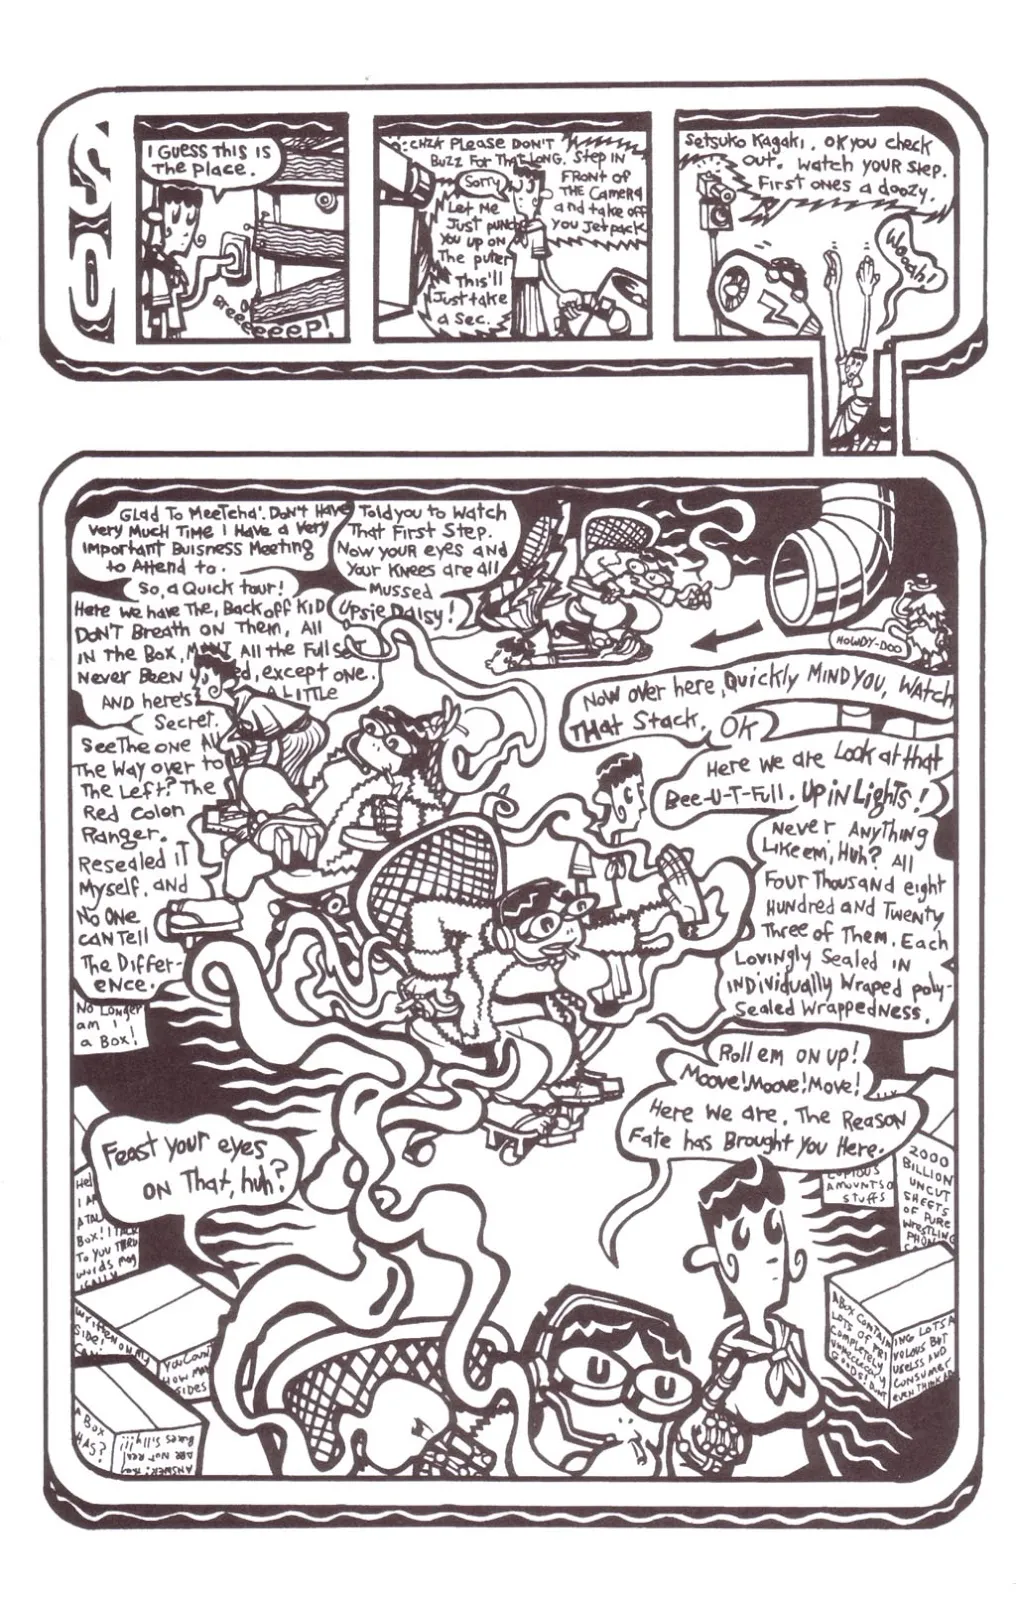 SO
I GUESS THIS IS
THE PLACE.
Breeeeeeep!
CHZK PLEASE DON'T
BUZZ FOR THAT LONG. STEP IN
FRONT OF
THE CAMERA
and take off
you Jetpack
Sorry
Let Me
Just punch
you up on
The puter
This'll
Just take
a Sec.
Setsuko Kagaki. OK you check
out. Watch YOUR Step.
First ones a doozy.
Woooh!
Glad To MeeTcha'. Don't Have
very Much Time I Have a Very
important Buisness Meeting
to Attend to.
So, a Quick tour!
Here we have The, Back off KID
DON'T Breath ON Them, All
IN the Box, MINT All the Full set
Never Been
d, except one.
AND here's
A LITTLE
Secret.
See The one All
The Way over to
The Left? The
Red Colon
Ranger.
Resealed iT
Myself. AND
No One
CAN Tell
The Differ-
ence.
Told you to Watch
That First Step.
Now your eyes and
Your Knees are all
Mussed
Upsie Daisy!
HOWDY-DOO
Now over here, Quickly MIND YOU, WAtch
THAT Stack. OK
Here we are Look at that
Bee-U-T-Full. UP IN LigHTs!
Never Anything
Like em', Huh? All
Four Thousand eight
Hundred and Twenty
Three of Them. Each
Lovingly Sealed IN
INDividually Wraped poly-
Sealed Wrappedness.
No Longer
am I,
a Box!
Roll em on up!
Moove! Moove! Move!
Here We are. The Reason
Fate has Brought You Here.
Feast your eyes
ON That, huh?
Box! I TALK
To You THRU
Words Mag
ICALLY
Written on my
Side!
CAN
You Count
How Many
Sides
A Box
HAS?
ANSWER: they
ARE NOT REAL
Boxes Silly!!!
COPIOUS
AMOUNTS O
STUFFS
2000
BILLION
UNCUT
SHEETS
OF PURE
WRESTLING
PHONE
A Box CONTAIN
ING LOTS A
LOTS OF FRI
VOLOUS BUT
COMPLETELY
USELSS AND
UNNECCECARY
CONSUMER
GOODS! DONT
EVEN THINK AB